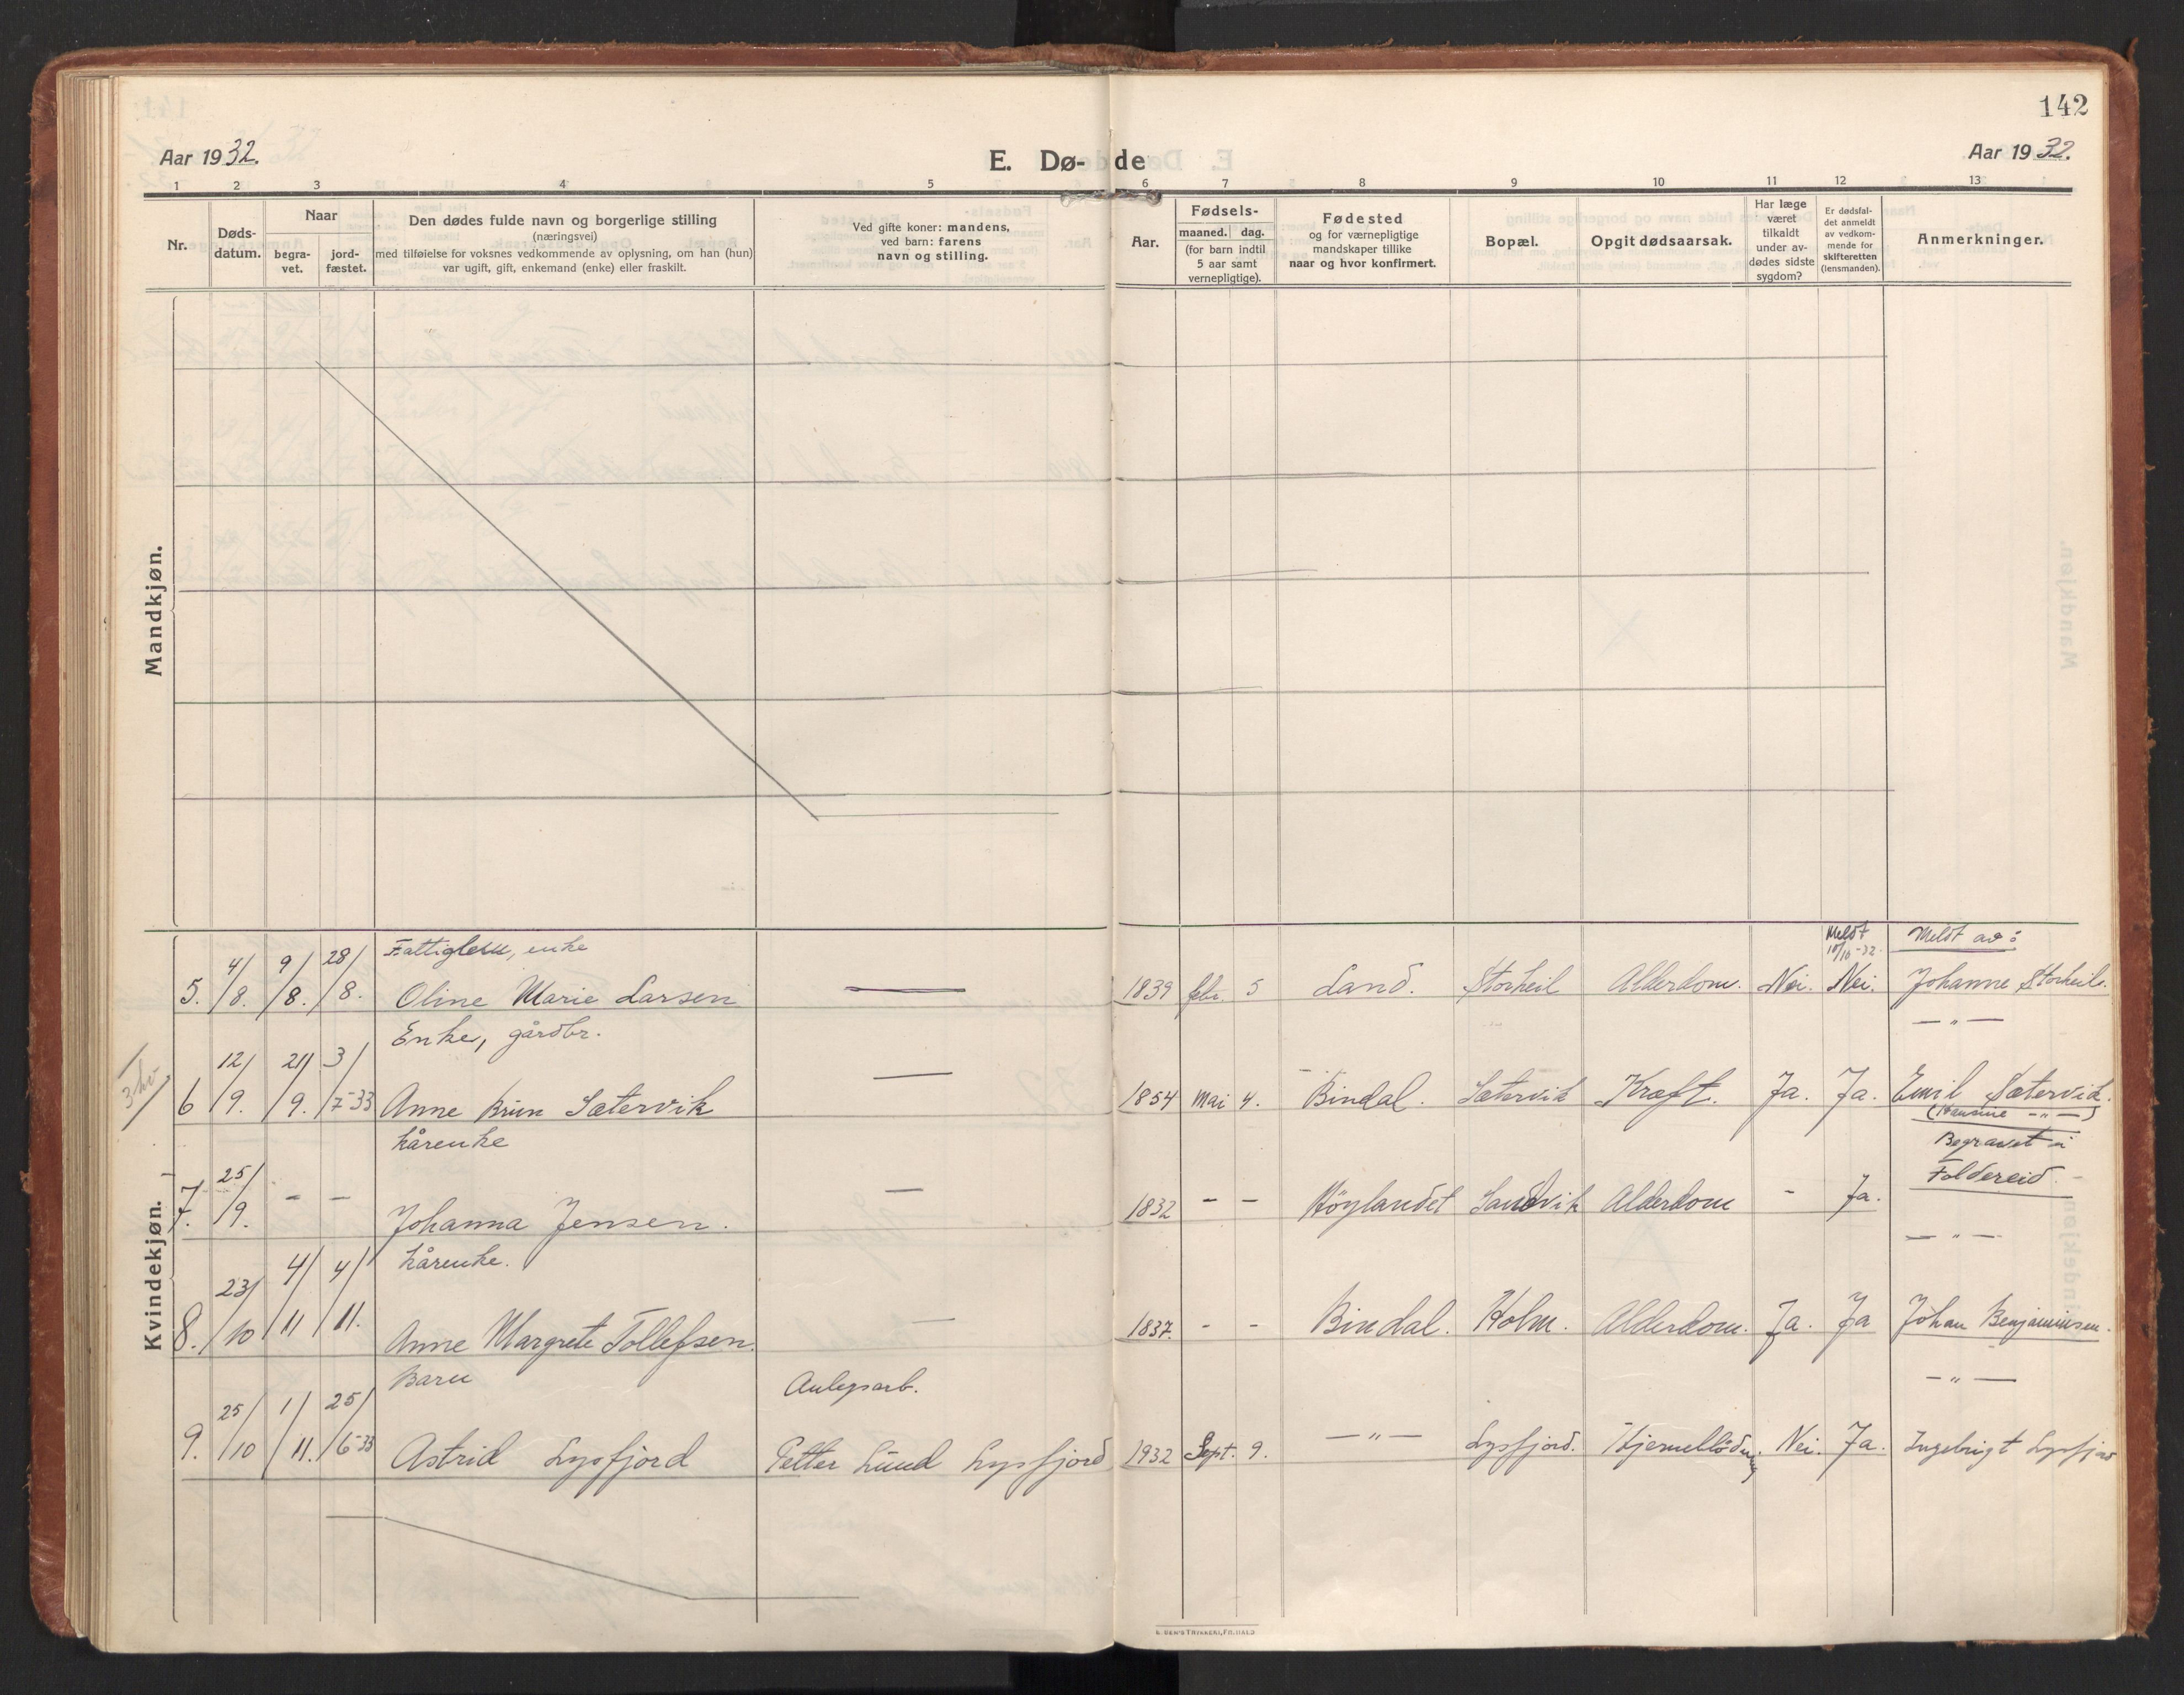 142
Aar 1932.
E. Dø- de
Aar 1932.
1 2 3 4 5 6 7 8 9 10 11 12 13
Nr.
Døds-
datum.
Naar
begra-
vet.
jord-
fæstet.
Den dødes fulde navn og borgerlige stilling
(næringsvei)
med tilføielse for voksnes vedkommende av oplysning, om han (hun)
var ugift, gift, enkemand (enke) eller fraskilt.
Ved gifte koner: mandens,
ved barn: farens
navn og stilling.
Aar.
Fødsels-
maaned. dag.
(for barn indtil
5 aar samt
vernepligtige).
Fødested
og for værnepligtige
mandskaper tillike
naar og hvor konfirmert.
Bopæl.
Opgit dødsaarsak.
Har læge
været
tilkaldt
under av-
dødes sidste
sygdom?
Er dødsfal-
det anmeldt
av vedkom-
mende for
skifteretten
(lensmanden).
Anmerkninger.
Mandkjøn.
Kvindekjøn.
Fattiglem, enke
Meldt
10/10-32.
Meldt av:
5. 4/8. 9/8. 28/8. Oline Marie Larsen — 1839 febr. 5 Land. Storheil Alderdom. Nei. Nei. Johanne Storheil.
Enke, gårdbr.
— " —
6 12/9. 21/9. 3/7-33 Anne Brun Sætervik — 1854 Mai 4. Bindal. Sætervik Kræft. Ja. Ja. Emil Sætervik.
(Hansine — " —)
kårenke
Begravet i
Foldereid.
7. 25/9. - - Johanna Jensen. — 1832 - - Höylandet Sandvik Alderdom - Ja.
kårenke.
— " —
8. 23/10 4/11 4/11. Anne Margrete Tollefsen. — 1837. - - Bindal. Holm. Alderdom. Ja. Ja Johan Benjaminsen.
Barn
Anlegsarb.
— " —
9. 25/10 1/11. 25/6-33 Astrid Lysfjord Petter Lund Lysfjord 1932 Sept. 9. — " — Lysfjord. Hjerneblödning Nei. Ja. Ingebrigt Lysfjord